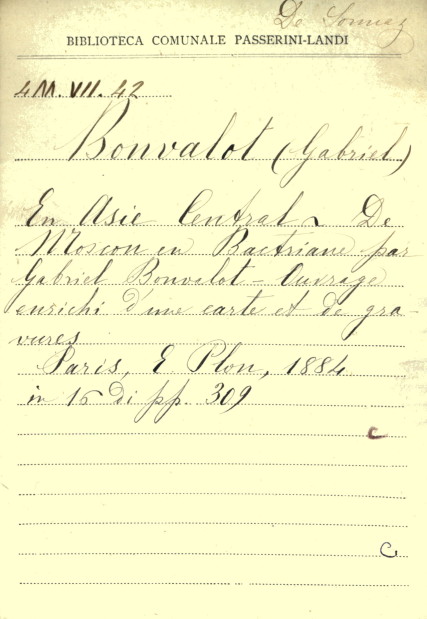 De
BIBLIOTECA COMUNALE PASSERINI-LANDI
4M. VII. 42
Bonvalot (Gabriel)
En Asie Central ~ De
Moscou en Bactriane par
Gabriel Bonvalot - Ouvrage
enrichi d'une carte et de gra-
vures
Paris, E Plon, 1884
in 16 di pp. 309
C
C